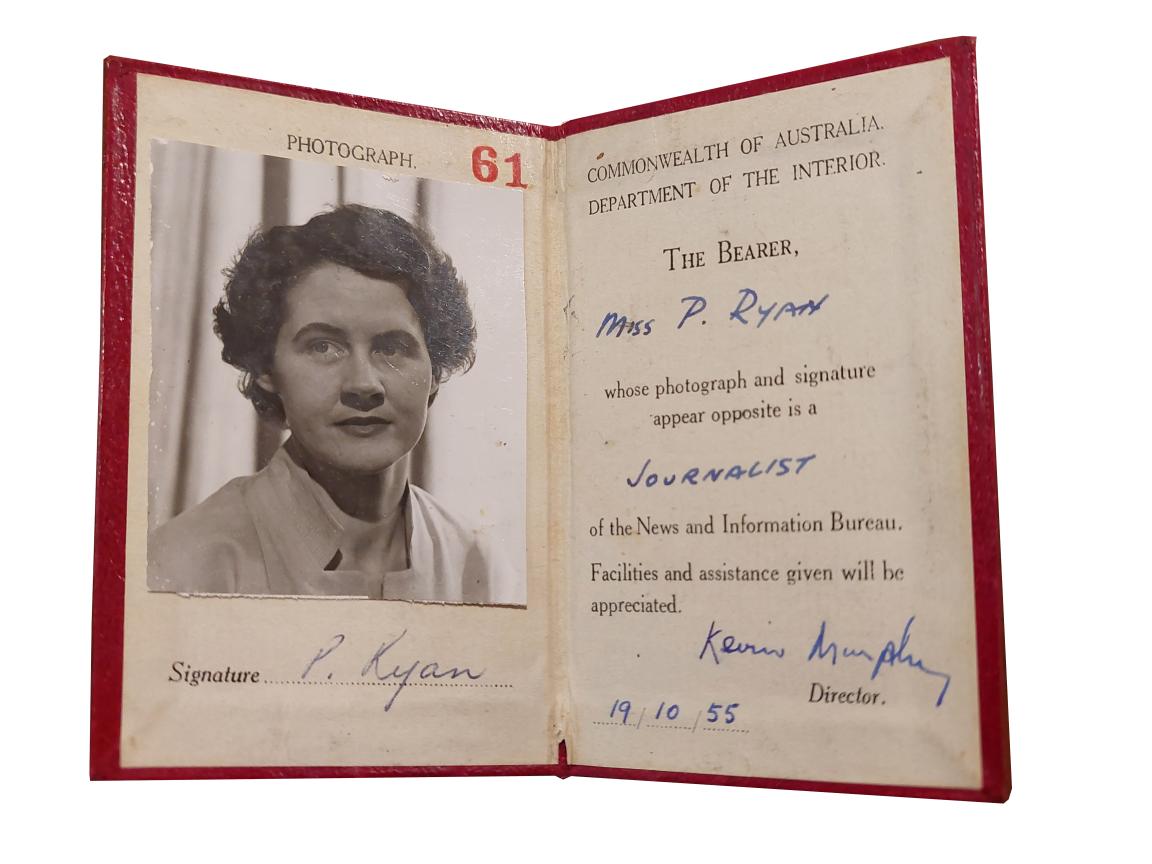 PHOTOGRAPH.
61
Signature P. Ryan
COMMONWEALTH OF AUSTRALIA.
DEPARTMENT OF THE INTERIOR.
THE BEARER,
MISS P. RYAN
whose photograph and signature
appear opposite is a
JOURNALIST
of the News and Information Bureau.
Facilities and assistance given will be
appreciated.
Kevin Murphy
Director.
19/10/55